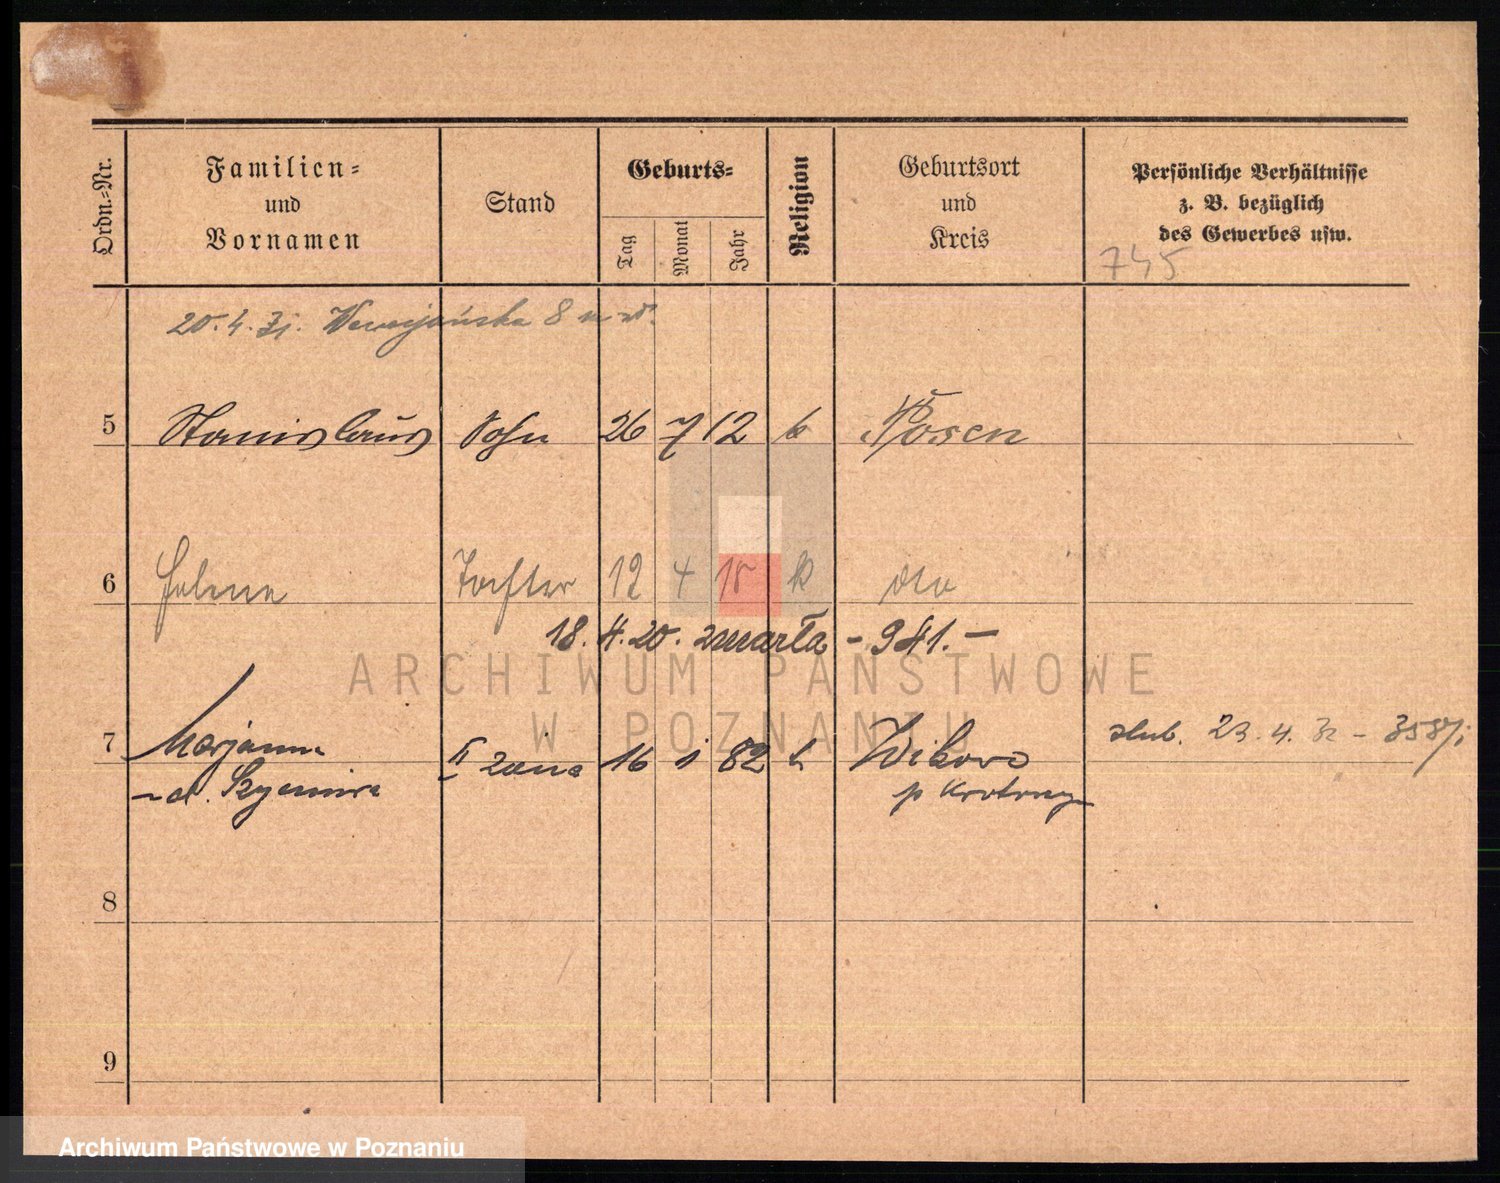 Ordn.-Nr.
Familien-
und
Vornamen
Stand
Geburts-
Tag
Monat
Jahr
Religion
Geburtsort
und
Kreis
Persönliche Verhältnisse
z. B. bezüglich
des Gewerbes usw.
745
20.4.31. 8
5 Stanislaus Sohn 26 7 12 k Posen
6 Helene Tochter 12 4 15 k dto
18.4.20. zmarła - 941.-
7 Marjanna II żona 16 1 82 k Wikowo ślub. 23.4.32 -
z d.
p
8
9
ARCHIWUM PAŃSTWOWE
W POZNANIU
Archiwum Państwowe w Poznaniu